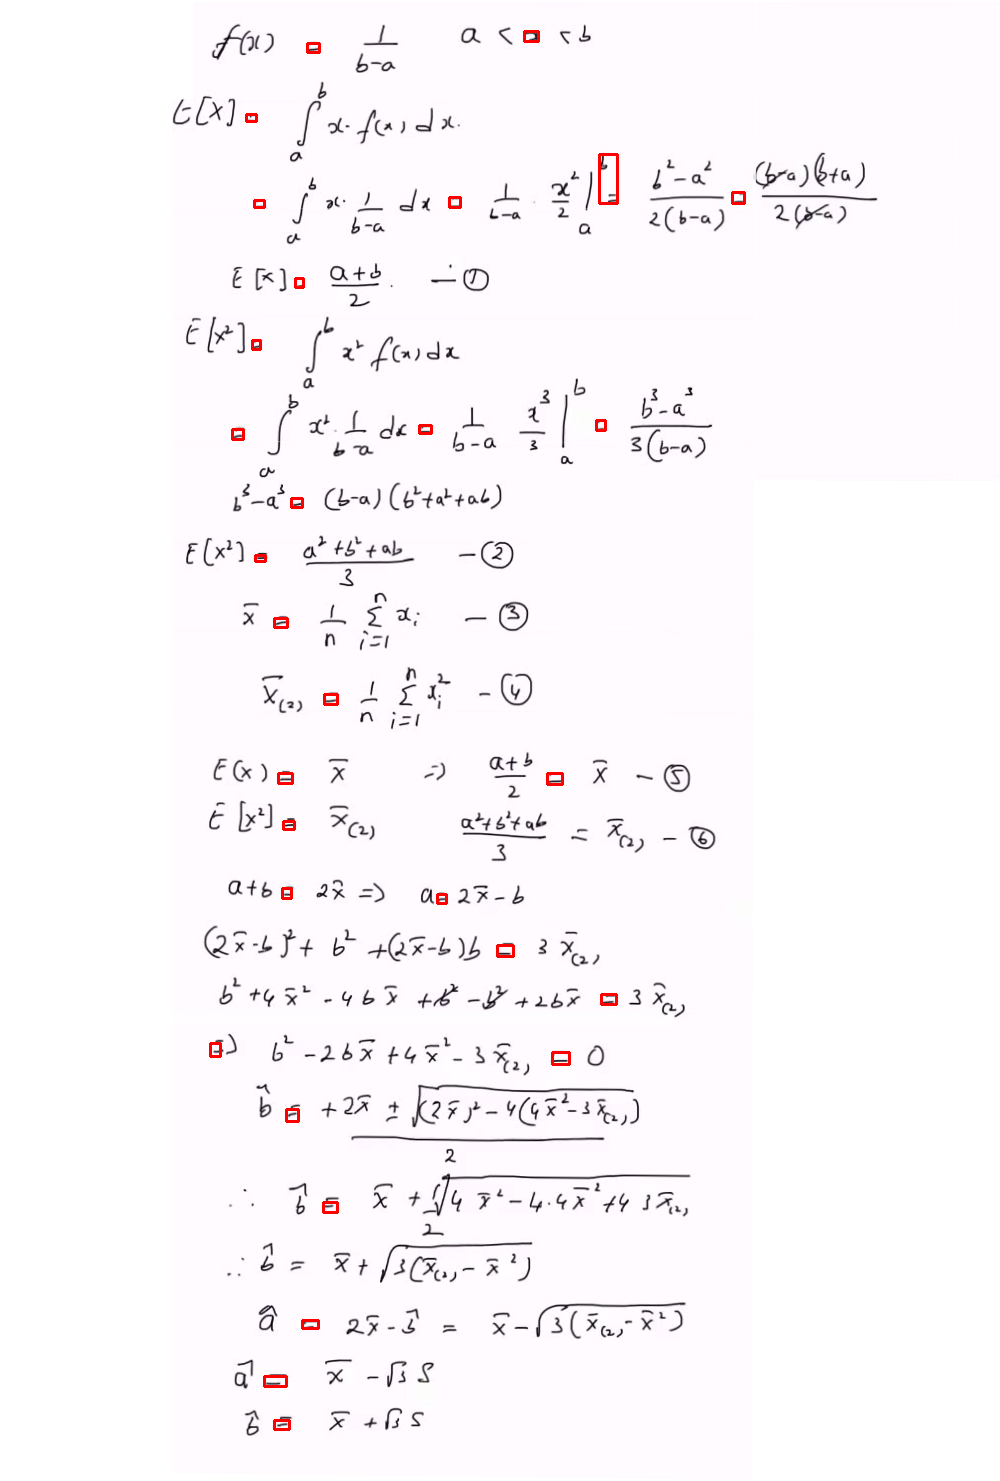 f(x) = 1/(b-a)   a < x < b
E[X] = ∫_a^b x. f(x) dx.
= ∫_a^b x. 1/(b-a) dx = 1/(b-a) . x²/2 |_a^b = (b²-a²)/(2(b-a)) = (b-a)(b+a)/(2(b-a))
E[X] = (a+b)/2 . — ①
E[X²] = ∫_a^b x² f(x) dx
= ∫_a^b x². 1/(b-a) dx = 1/(b-a) x³/3 |_a^b = (b³-a³)/(3(b-a))
b³-a³ = (b-a)(b²+a²+ab)
E[X²] = (a²+b²+ab)/3 — ②
x̄ = 1/n Σ_{i=1}^n x_i — ③
x̄_(2) = 1/n Σ_{i=1}^n x_i² — ④
E(X) = x̄ ⇒ (a+b)/2 = x̄ — ⑤
E[X²] = x̄_(2)   (a²+b²+ab)/3 = x̄_(2) — ⑥
a+b = 2x̄ ⇒ a = 2x̄-b
(2x̄-b)² + b² +(2x̄-b)b = 3 x̄_(2)
b² +4x̄² - 4bx̄ + b² - b² + 2bx̄ = 3 x̄_(2)
⇒ b² - 2bx̄ + 4x̄² - 3x̄_(2) = 0
b̂ = (+2x̄ ± √((2x̄)² - 4(4x̄² - 3x̄_(2))))/2
∴ b̂ = x̄ + √(4x̄² - 4.4x̄² + 4 3x̄_(2))/2
∴ b̂ = x̄ + √(3(x̄_(2) - x̄²))
â = 2x̄ - b̂ = x̄ - √(3(x̄_(2) - x̄²))
â = x̄ - √3 S
b̂ = x̄ + √3 S